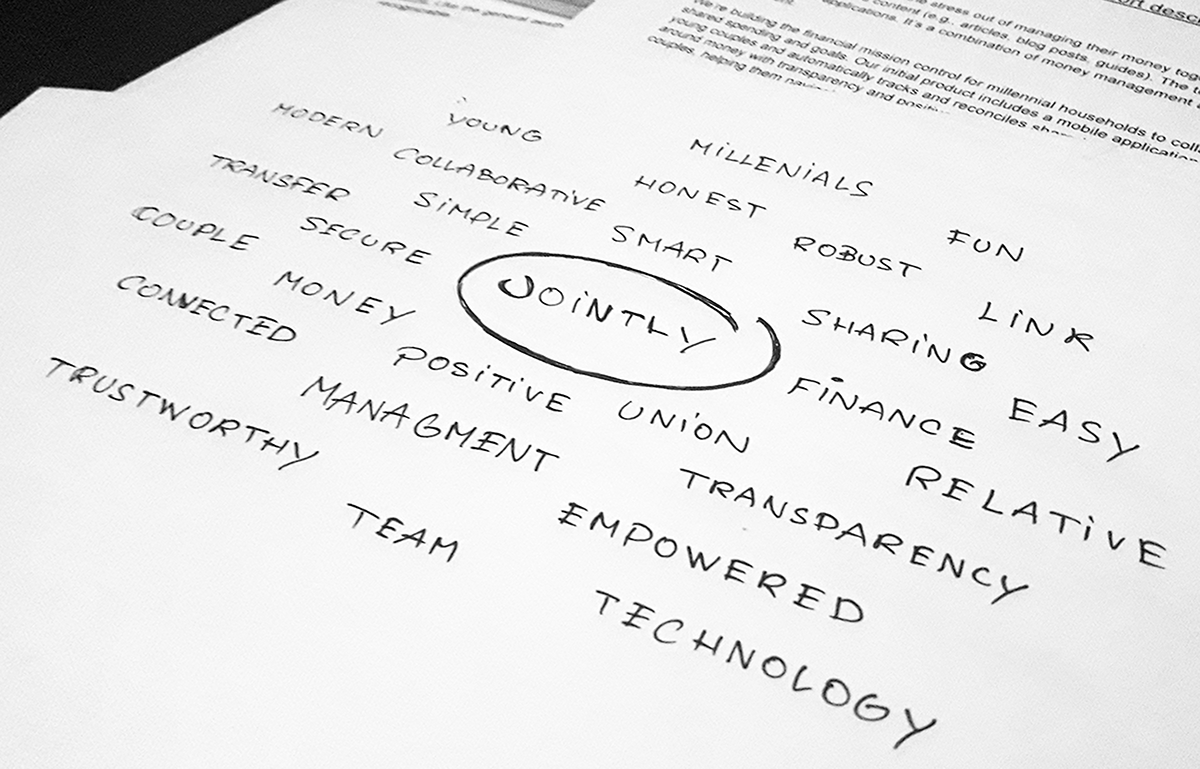 ort desc
stress out of managing their money tog
content (e.g., articles, blog posts, guides). The t
applications. It's a combination of money management
We're building the financial mission control for millennial households to coll
shared spending and goals. Our initial product includes a mobile application
young couples and automatically tracks and reconciles
around money with transparency and
couples, helping them
Like the general
MODERN YOUNG MiLLENiALS
TRANSFER COLLABORATiVE HONEST FUN
COUPLE SECURE SiMPLE SMART ROBUST LiNK
CONNECTED MONEY JOiNTLY SHARiNG EASY
TRUSTWORTHY MANAGMENT POSiTiVE UNiON FiNANCE RELATiVE
TEAM EMPOWERED TRANSPARENCY
TECHNOLOGY